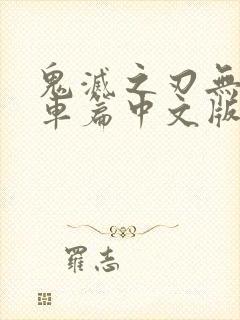 鬼滅之刃無
車篇中文版
羅志